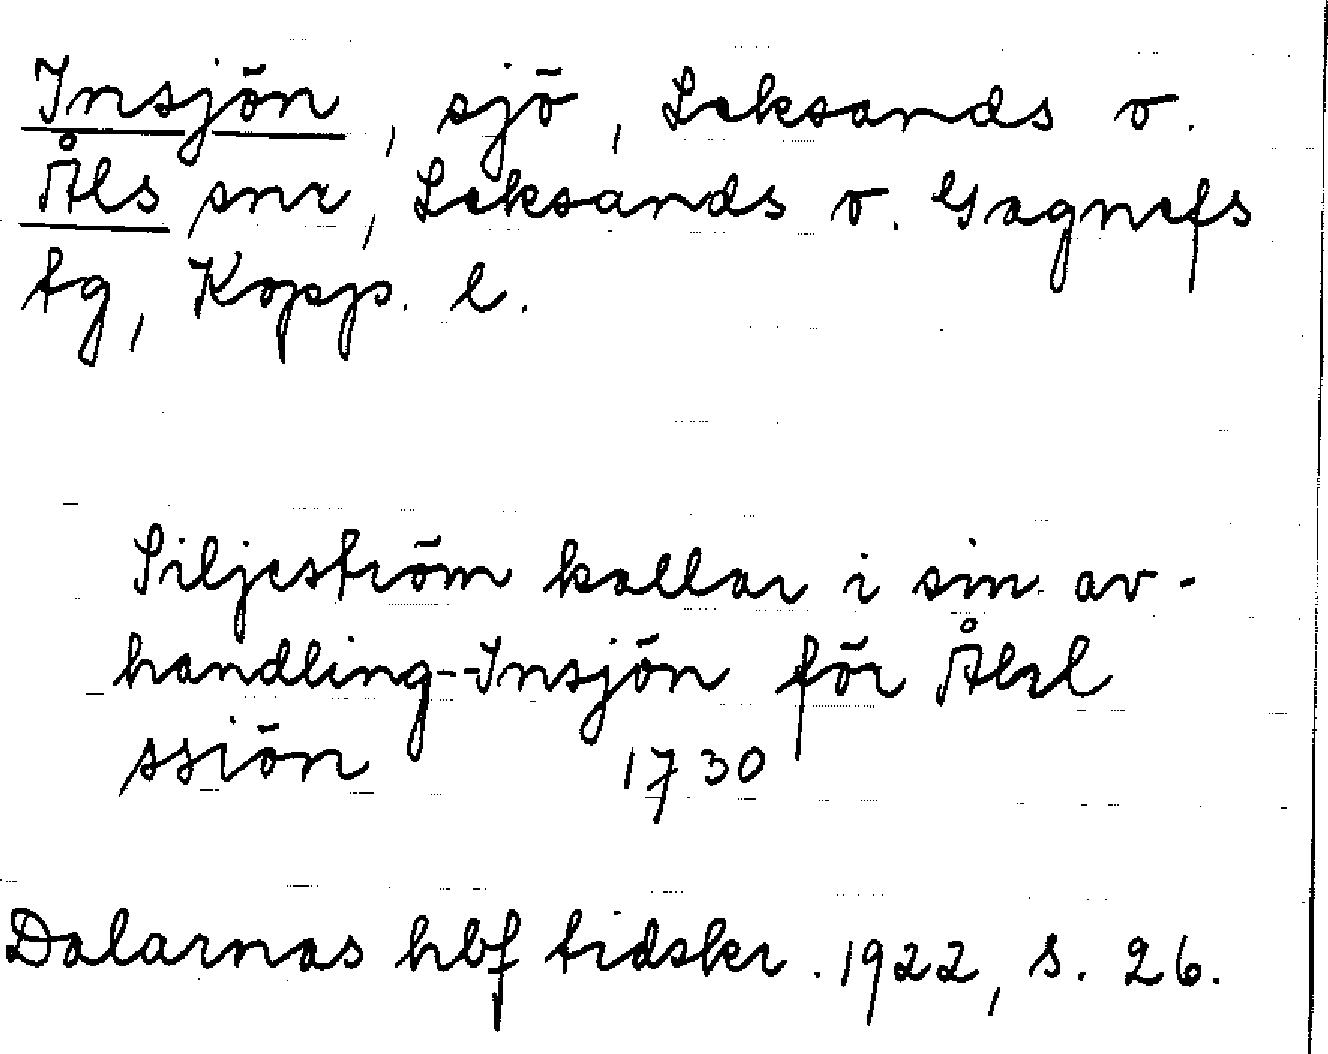 Insjön, sjö, Leksands o.
Åls snr, Leksands o. Gagnefs
tg, Kopp. l.
Siljeström kallar i sin av-
handling--Insjön för Åhl
ssiön 1730
Dalarnas hbf tidskr. 1922, s. 26.